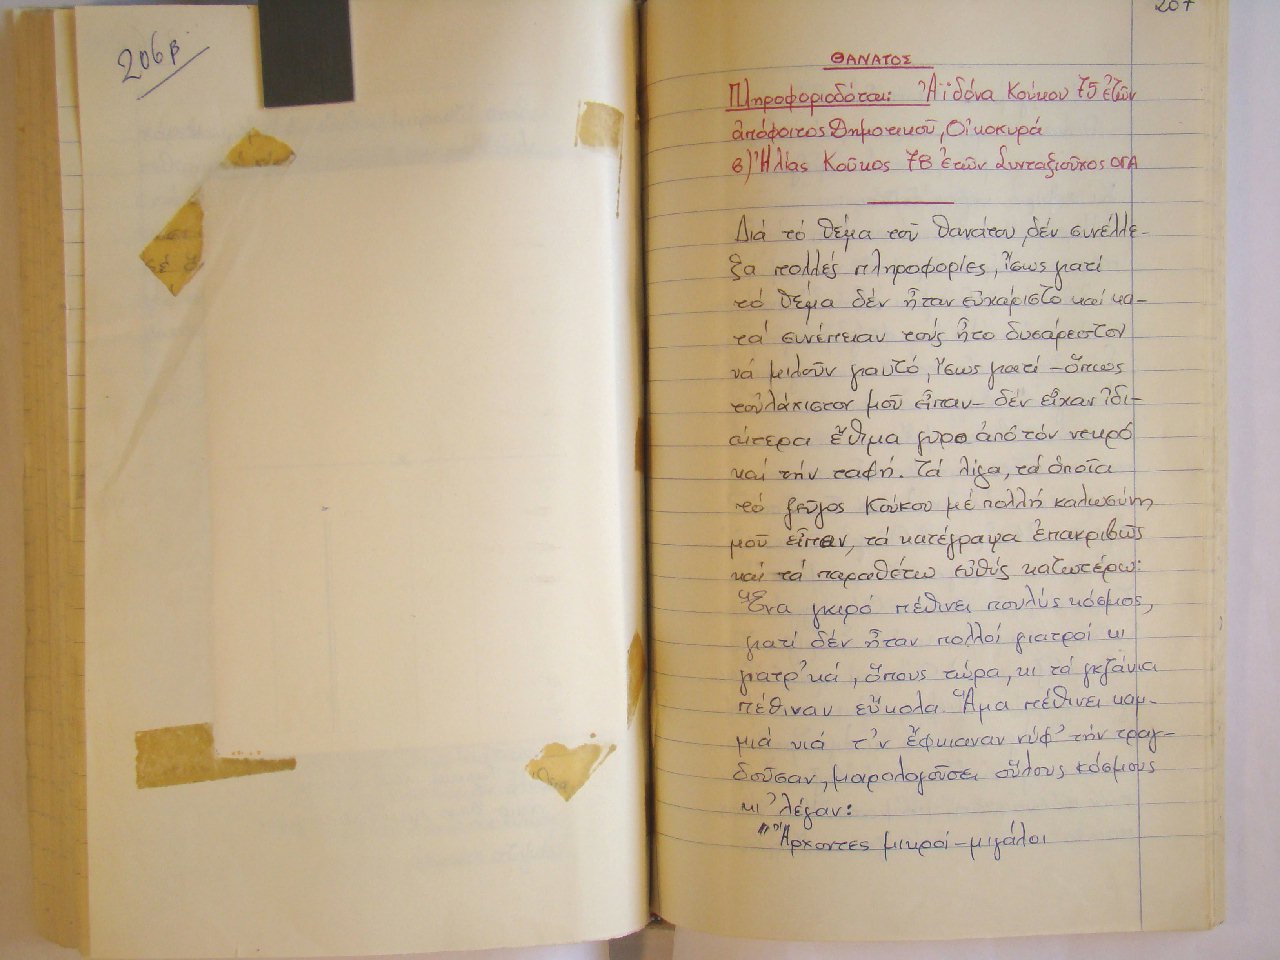 206β.
207
ΘΑΝΑΤΟΣ
Πληροφοριοδόται: Ἀϊδόνα Κούκου 75 ἐτῶν
ἀπόφοιτος Δημοτικοῦ, Οἰκοκυρά
β) Ἠλίας Κούκος 78 ἐτῶν Συνταξιοῦχος ΟΓΑ
Διά τό θέμα τοῦ θανάτου, δέν συνέλλε-
ξα πολλές πληροφορίες, ἴσως γιατί
τό θέμα δέν ἦταν εὐχάριστο καί κα-
τά συνέπειαν τούς ἦτο δυσάρεστον
νά μιλοῦν γιαυτό, ἴσως γιατί – ὅπως
τοὐλάχιστον μοῦ εἶπαν – δέν εἶχαν ἰδι-
αίτερα ἔθιμα γύρο ἀπό τόν νεκρό
καί τήν ταφή. Τά λίγα, τά ὁποῖα
τό ζεῦγος Κούκου μέ πολλή καλωσύνη
μοῦ εἶπαν, τά κατέγραψα ἐπακριβῶς
καί τά παραθέτω εὐθύς κατωτέρω:
"Ἕνα γκιρό πέθινει πουλύς κόσμος,
γιατί δέν ἦταν πολλοί γιατροί κι
γιατρ'κά, ὅπους τώρα, κι τά γκζάνια
πέθιναν εὔκολα. Ἅμα πέθινει καμ-
μιά νιά τ'ν ἔφκιαναν νύφ' τήν τραγ-
δοῦσαν, μαρολογοῦσει οὕλους κόσμους
κι 'λέγαν:
"Ἄρχοντες μικροί – μιγάλοι